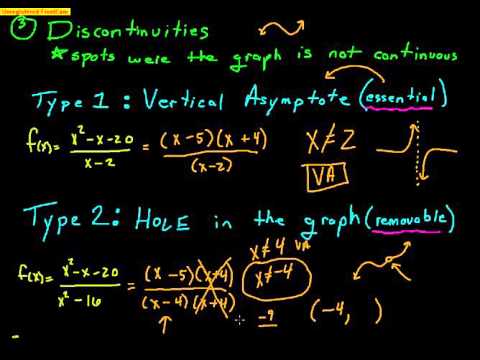 Unregistered FrontCam
③ Discontinuities
* spots were the graph is not continuous
Type 1: Vertical Asymptote (essential)
f(x) = x²-x-20 / x-2 = (x-5)(x+4) / (x-2) x≠2
VA
Type 2: HOLE in the graph (removable)
x≠4 VA
f(x) = x²-x-20 / x²-16 = (x-5)(x+4) / (x-4)(x+4) x≠-4
-9 (-4, )